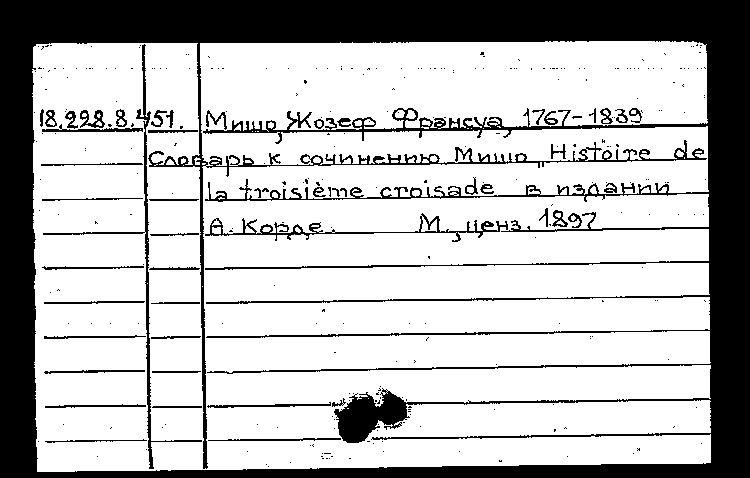 18.228.8.451. Мишо, Жозеф Франсуа, 1767-1839
Словарь к сочинению Мишо „Histoire de
la troisième croisade в издании
А. Корде. М., ценз. 1897